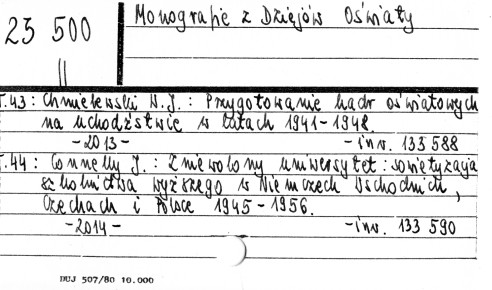 23 500
II
Monografie z Dziejów Oświaty
T.43: Chmielewski W.J.: Przygotowanie kadr oświatowych
na uchodźstwie w latach 1941-1948.
-2013- -inw. 133 588
T.44: Connelly J.: Zniewolony uniwersytet: sowietyzacja
szkolnictwa wyższego w Niemczech Wschodnich,
Czechach i Polsce 1945-1956.
-2014- -inw. 133 590
DUJ 507/80 10.000